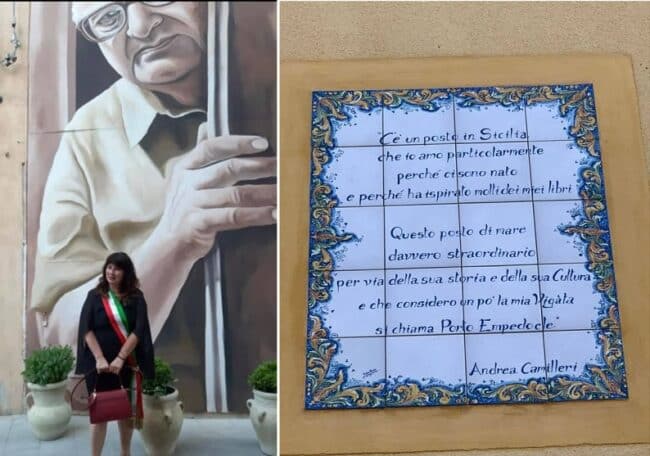 C'è un posto in Sicilia,
che io amo particolarmente
perché ci sono nato
e perché ha ispirato molti dei miei libri
Questo posto di mare
davvero straordinario
per via della sua storia e della sua Cultura
e che considero un po' la mia Vigàta
si chiama Porto Empedocle"
Andrea Camilleri